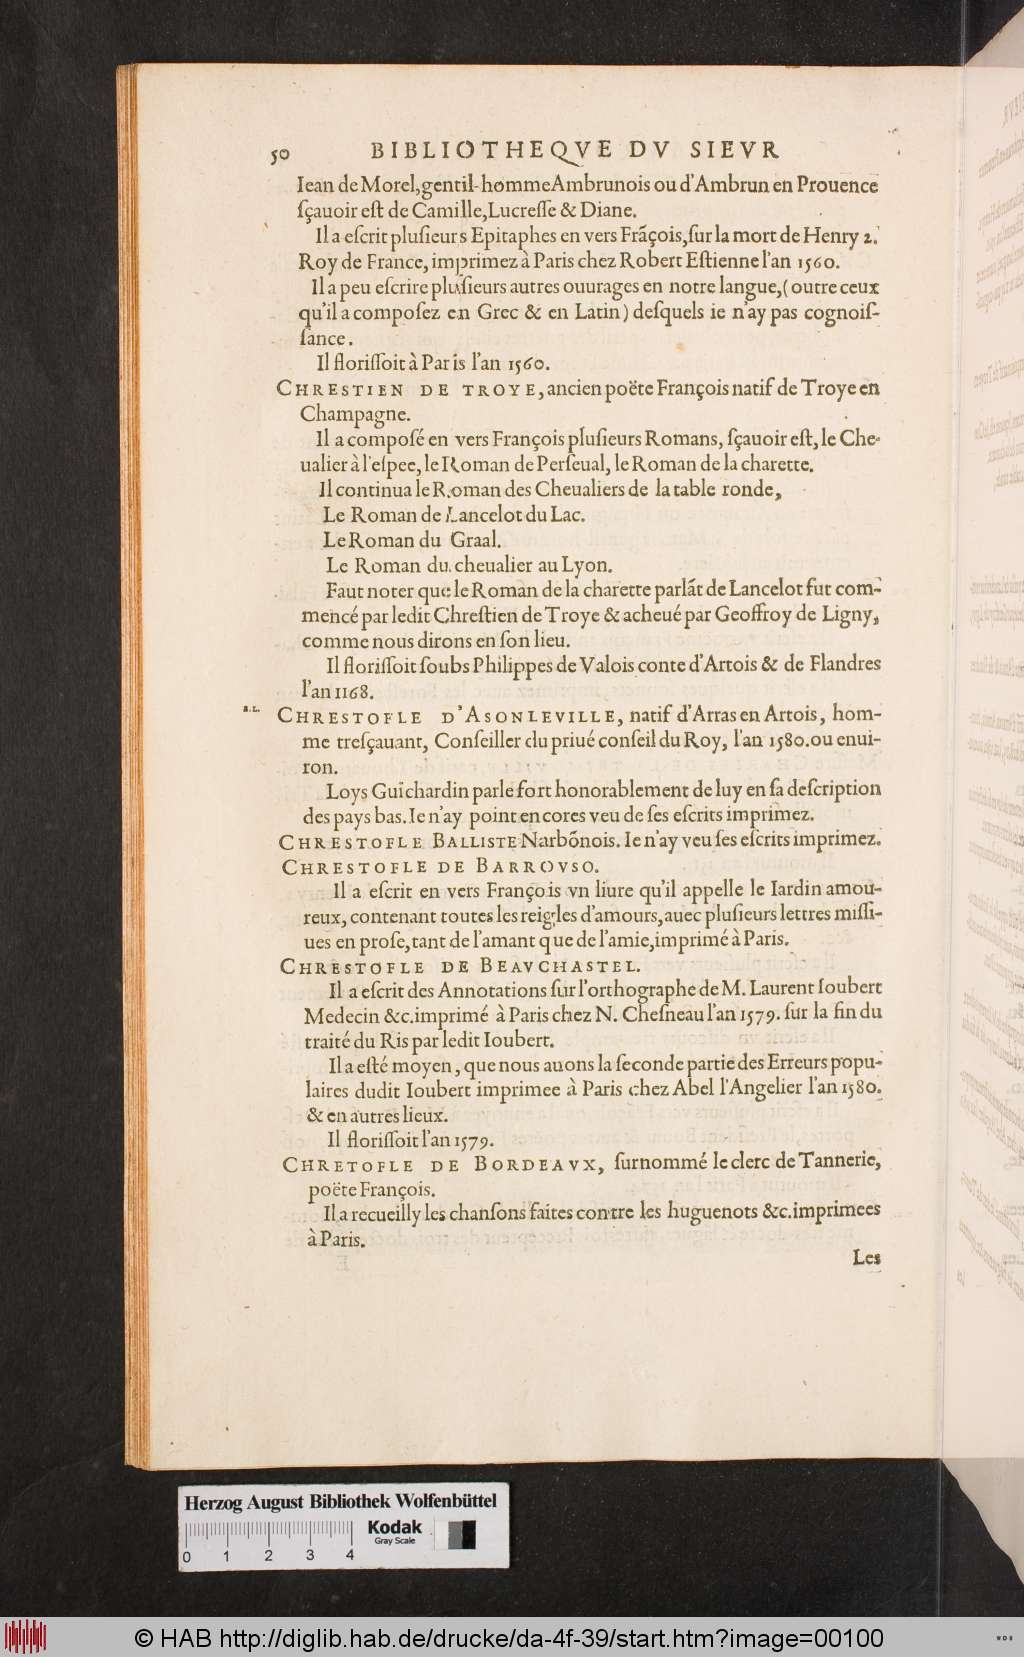 50 BIBLIOTHEQVE DV SIEVR
Iean de Morel, gentil-homme Ambrunois ou d'Ambrun en Prouence
ſçauoir eſt de Camille, Lucreſſe & Diane.
Il a eſcrit pluſieurs Epitaphes en vers Frãçois, ſur la mort de Henry 2.
Roy de France, imprimez à Paris chez Robert Eſtienne l'an 1560.
Il a peu eſcrire pluſieurs autres ouurages en notre langue, (outre ceux
qu'il a compoſez en Grec & en Latin) deſquels ie n'ay pas cognoiſ-
ſance.
Il floriſſoit à Paris l'an 1560.
CHRESTIEN DE TROYE, ancien poëte François natif de Troye en
Champagne.
Il a compoſé en vers François pluſieurs Romans, ſçauoir eſt, le Che-
ualier à l'eſpee, le Roman de Perſeual, le Roman de la charette.
Il continua le Roman des Cheualiers de la table ronde,
Le Roman de Lancelot du Lac.
Le Roman du Graal.
Le Roman du cheualier au Lyon.
Faut noter que le Roman de la charette parlãt de Lancelot fut com-
mencé par ledit Chreſtien de Troye & acheué par Geoffroy de Ligny,
comme nous dirons en ſon lieu.
Il floriſſoit ſoubs Philippes de Valois conte d'Artois & de Flandres
l'an 1168.
CHRESTOFLE D'ASONLEVILLE, natif d'Arras en Artois, hom-
me treſçauant, Conſeiller du priué conſeil du Roy, l'an 1580. ou enui-
ron.
Loys Guichardin parle fort honorablement de luy en ſa deſcription
des pays bas. Ie n'ay point encores veu de ſes eſcrits imprimez.
CHRESTOFLE BALLISTE Narbõnois. Ie n'ay veu ſes eſcrits imprimez.
CHRESTOFLE DE BARROVSO.
Il a eſcrit en vers François vn liure qu'il appelle le Iardin amou-
reux, contenant toutes les reigles d'amours, auec pluſieurs lettres miſſi-
ues en proſe, tant de l'amant que de l'amie, imprimé à Paris.
CHRESTOFLE DE BEAVCHASTEL.
Il a eſcrit des Annotations ſur l'orthographe de M. Laurent Ioubert
Medecin &c. imprimé à Paris chez N. Cheſneau l'an 1579. ſur la fin du
traité du Ris par ledit Ioubert.
Il a eſté moyen, que nous auons la ſeconde partie des Erreurs popu-
laires dudit Ioubert imprimee à Paris chez Abel l'Angelier l'an 1580.
& en autres lieux.
Il floriſſoit l'an 1579.
CHRETOFLE DE BORDEAVX, ſurnommé le clerc de Tannerie,
poëte François.
Il a recueilly les chanſons faites contre les huguenots &c. imprimees
à Paris.
Les
Herzog August Bibliothek Wolfenbüttel
Kodak
Gray Scale
0 1 2 3 4
© HAB http://diglib.hab.de/drucke/da-4f-39/start.htm?image=00100